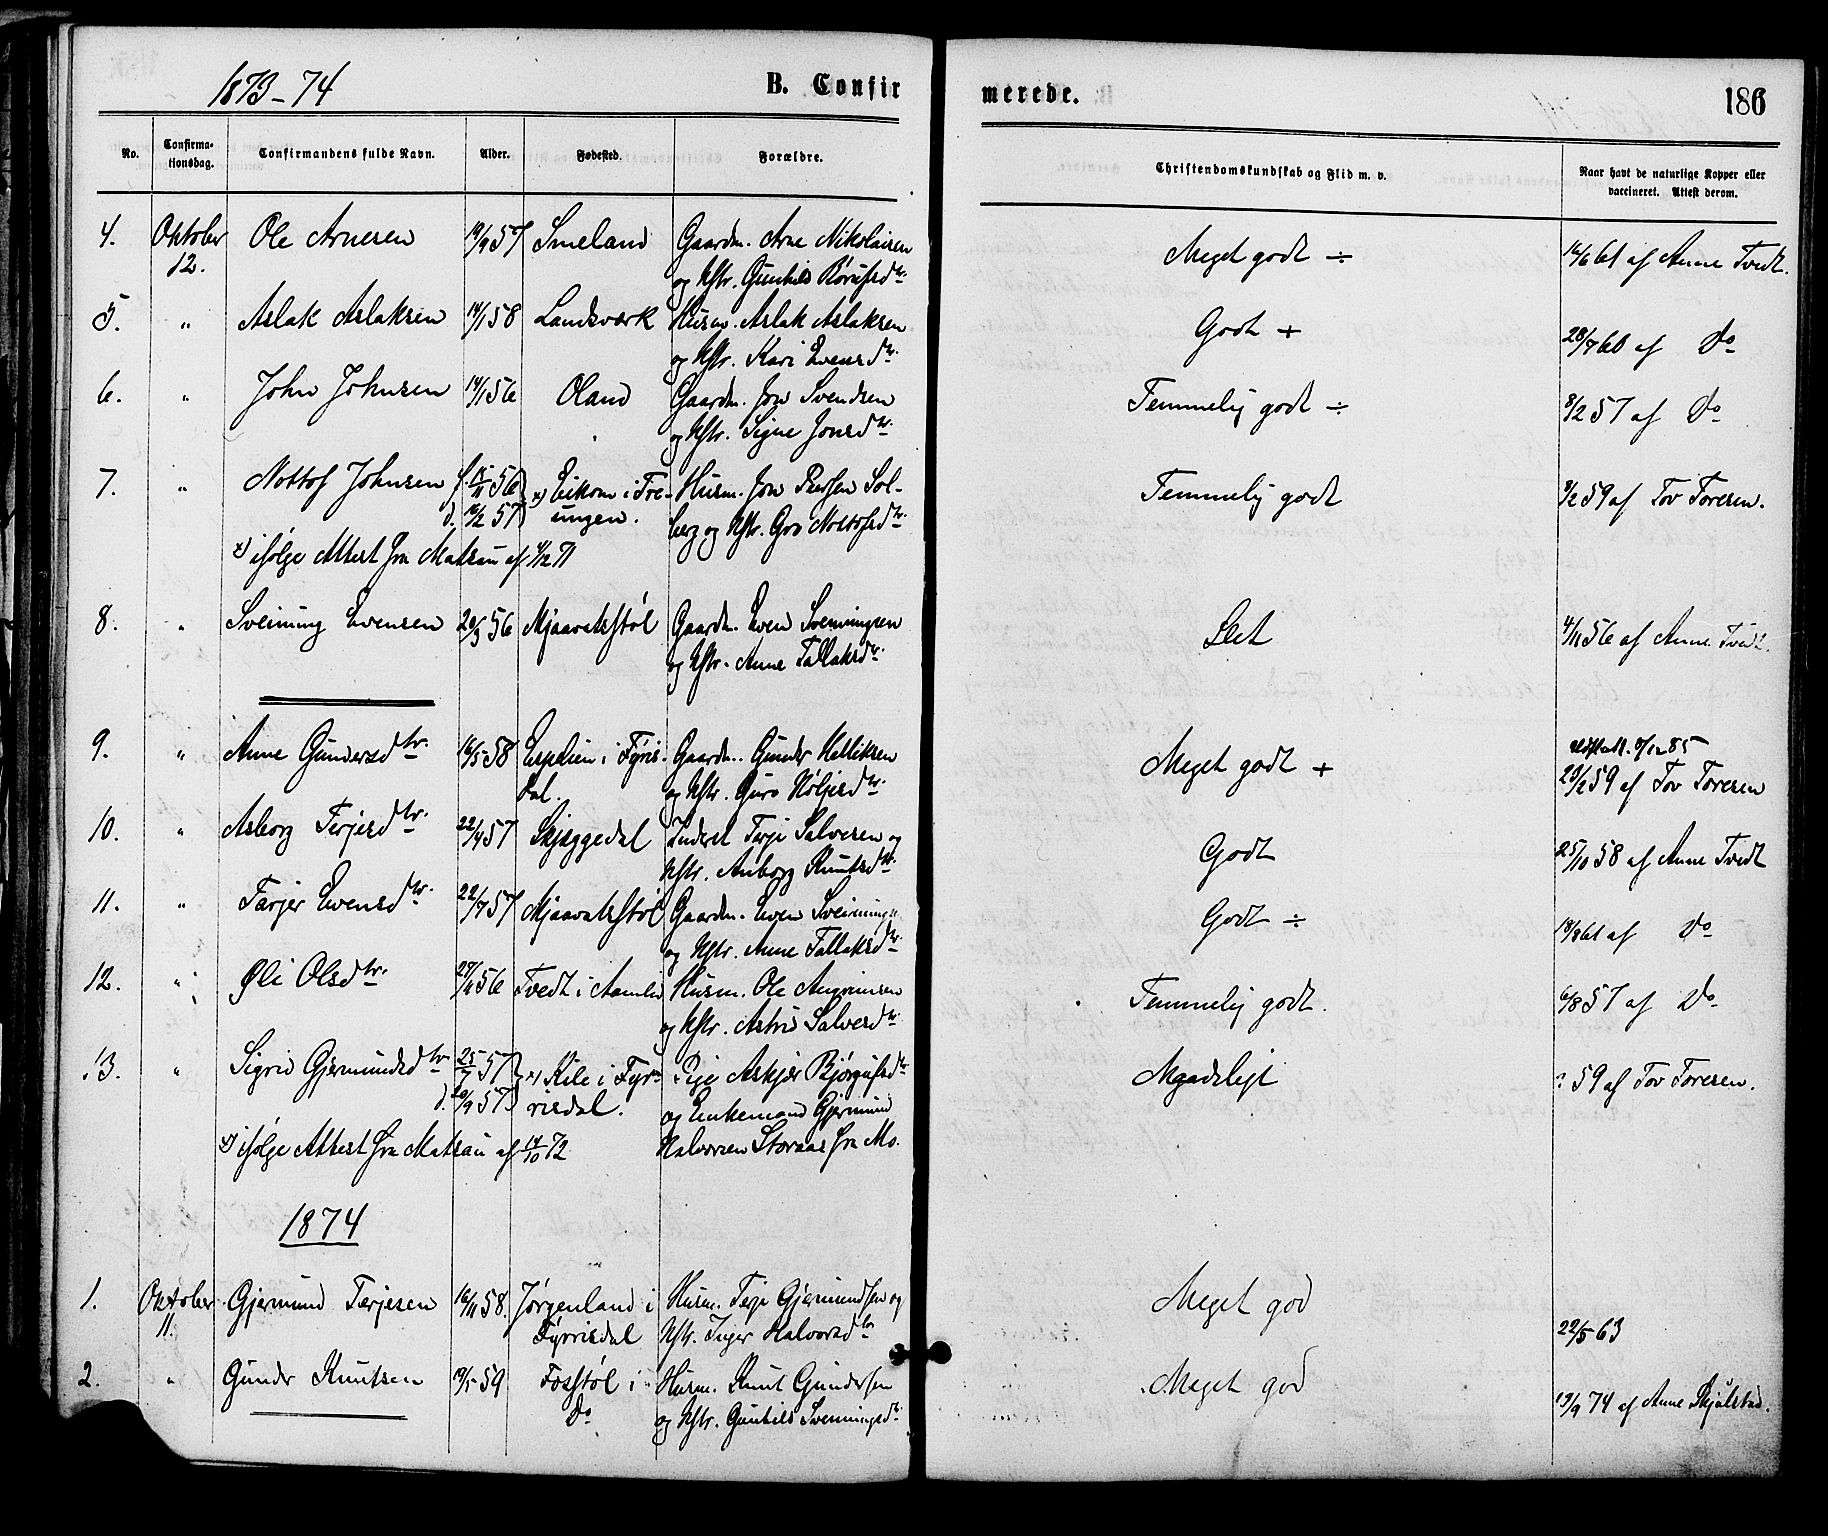 1873-74
B. Confir
merede.
186
No.
Confirma-
tionsdag.
Confirmandens fulde Navn.
Alder.
Fødested.
Forældre.
Christendomskundskab og Flid m. v.
Naar havt de naturlige Kopper eller
vaccineret. Attest derom.
4. Oktober 12. Ole Arnesen 19/9 57 Smeland Gaardm. Arne Nikolaisen
og Hstr.
Meget godt ÷ 14/6 61 af Anne Tvedt.
5. " Aslak Aslaksen 14/1 58 Landsværk Husm. Aslak Aslaksen
og Hstr. Kari Evensdtr.
Godt + 28/7 60 af Do
6. " John Johnsen 14/1 56 Oland Gaardm. Jon Svendsen
og Hstr. Signe Jonsdtr.
Temmelig godt ÷ 8/2 57 af Do
7. " Nottof Johnsen f. 15/11 56 x) Eikom i Tre- Husm. Jon Persen Sol-
d. 10/2 57 ungen. berg og Hstr. Gro Nottofsdtr.
Temmelig godt 9/2 59 af Tov Toresen.
x) ifølge Attest fra Maksau af 4/12 71
8. " Sveinung Evensen 20/3 56 Mjaavatsstøl Gaardm. Even Svenningsen
og Hstr. Anne Tallaksdtr.
Slet 4/11 56 af Anne Tvedt.
9. " Anne Gundersdtr. 16/5 58 Espelien i Fyris- Gaardm. Gunder
dal. og Hstr. Guro
Meget godt + 9/12 85
23/2 59 af Tov Toresen
10. " Asborg Terjesdtr. 22/4 57 Skjæggedal Inderst Terje Salvesen og
Hstr. Anborg Knutsdtr.
Godt 25/10 58 af Anne Tvedt
11. " Tarjer Evensdtr. 22/7 57 Mjaavatsstøl Gaardm. Even
og Hstr. Anne Tallaksdtr.
Godt ÷ af Do
12. " Øli Olsdtr. 56 Tvedt i Aamlid Husm. Ole
og Hstr. Astrid Salvesdtr.
Temmelig godt. 6/8 57 af Do
13. " Sigrid Gjermundsdtr. 25/7 57 x) Kile i Fyr- Pige Askjær Bjørgufsdtr.
d. 20/9 57 risdal. og Enkemand Gjermund
Halvorsen Storaas fra Mo.
Maadeligt ? 59 af Tov Toresen.
x) ifølge Attest fra Maksau af 14/10 72
1874
1. Oktober 11. Gjermund Terjesen 16/11 58. Jørgenland i Husm. Terje Gjermundsen og
Fyrrisdal Hstr. Inger Halvorsdtr.
Meget god 22/5 63
2. " Gunder Knutsen 19/5 59 Fosstøl i Husm. Knut Gundersen
Do og Hstr. Gunhild Svenningsdtr.
Meget god 19/9 74 af Anne